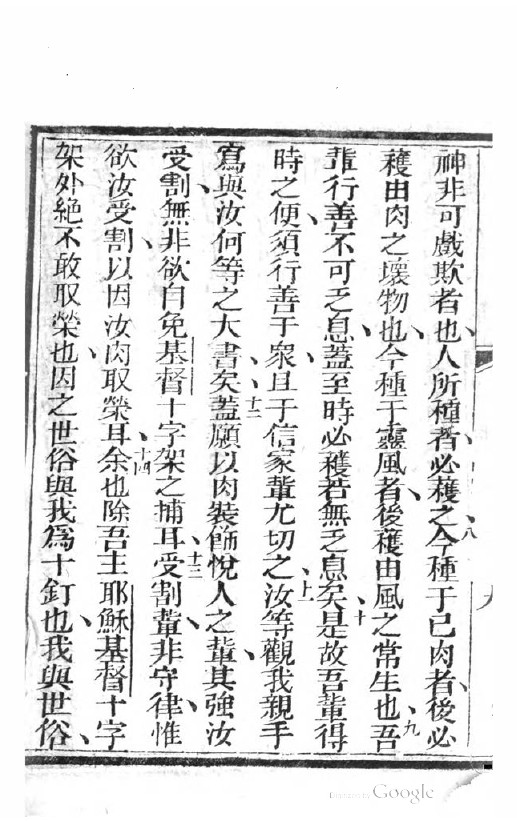 神非可戲欺者也、人所種者、必穫之、八今種于己肉者、後必
穫由肉之壞物也、今種于靈風者、後穫由風之常生也、九吾
輩行善不可乏息、蓋至時必穫、若無乏息矣、十是故吾輩得
時之便、須行善于眾、且于信家輩尤切之、十一汝等觀我親手
寫與汝何等之大書矣、十二蓋願以肉裝飾悅人之輩、其強汝
受割、無非欲自免基督十字架之捕耳、十三受割輩非守律、惟
欲汝受割、以因汝肉取榮耳、十四余也除吾主耶穌基督十字
架外、絕不敢取榮也、因之世俗與我為十釘也、我與世俗、
Digitized by Google